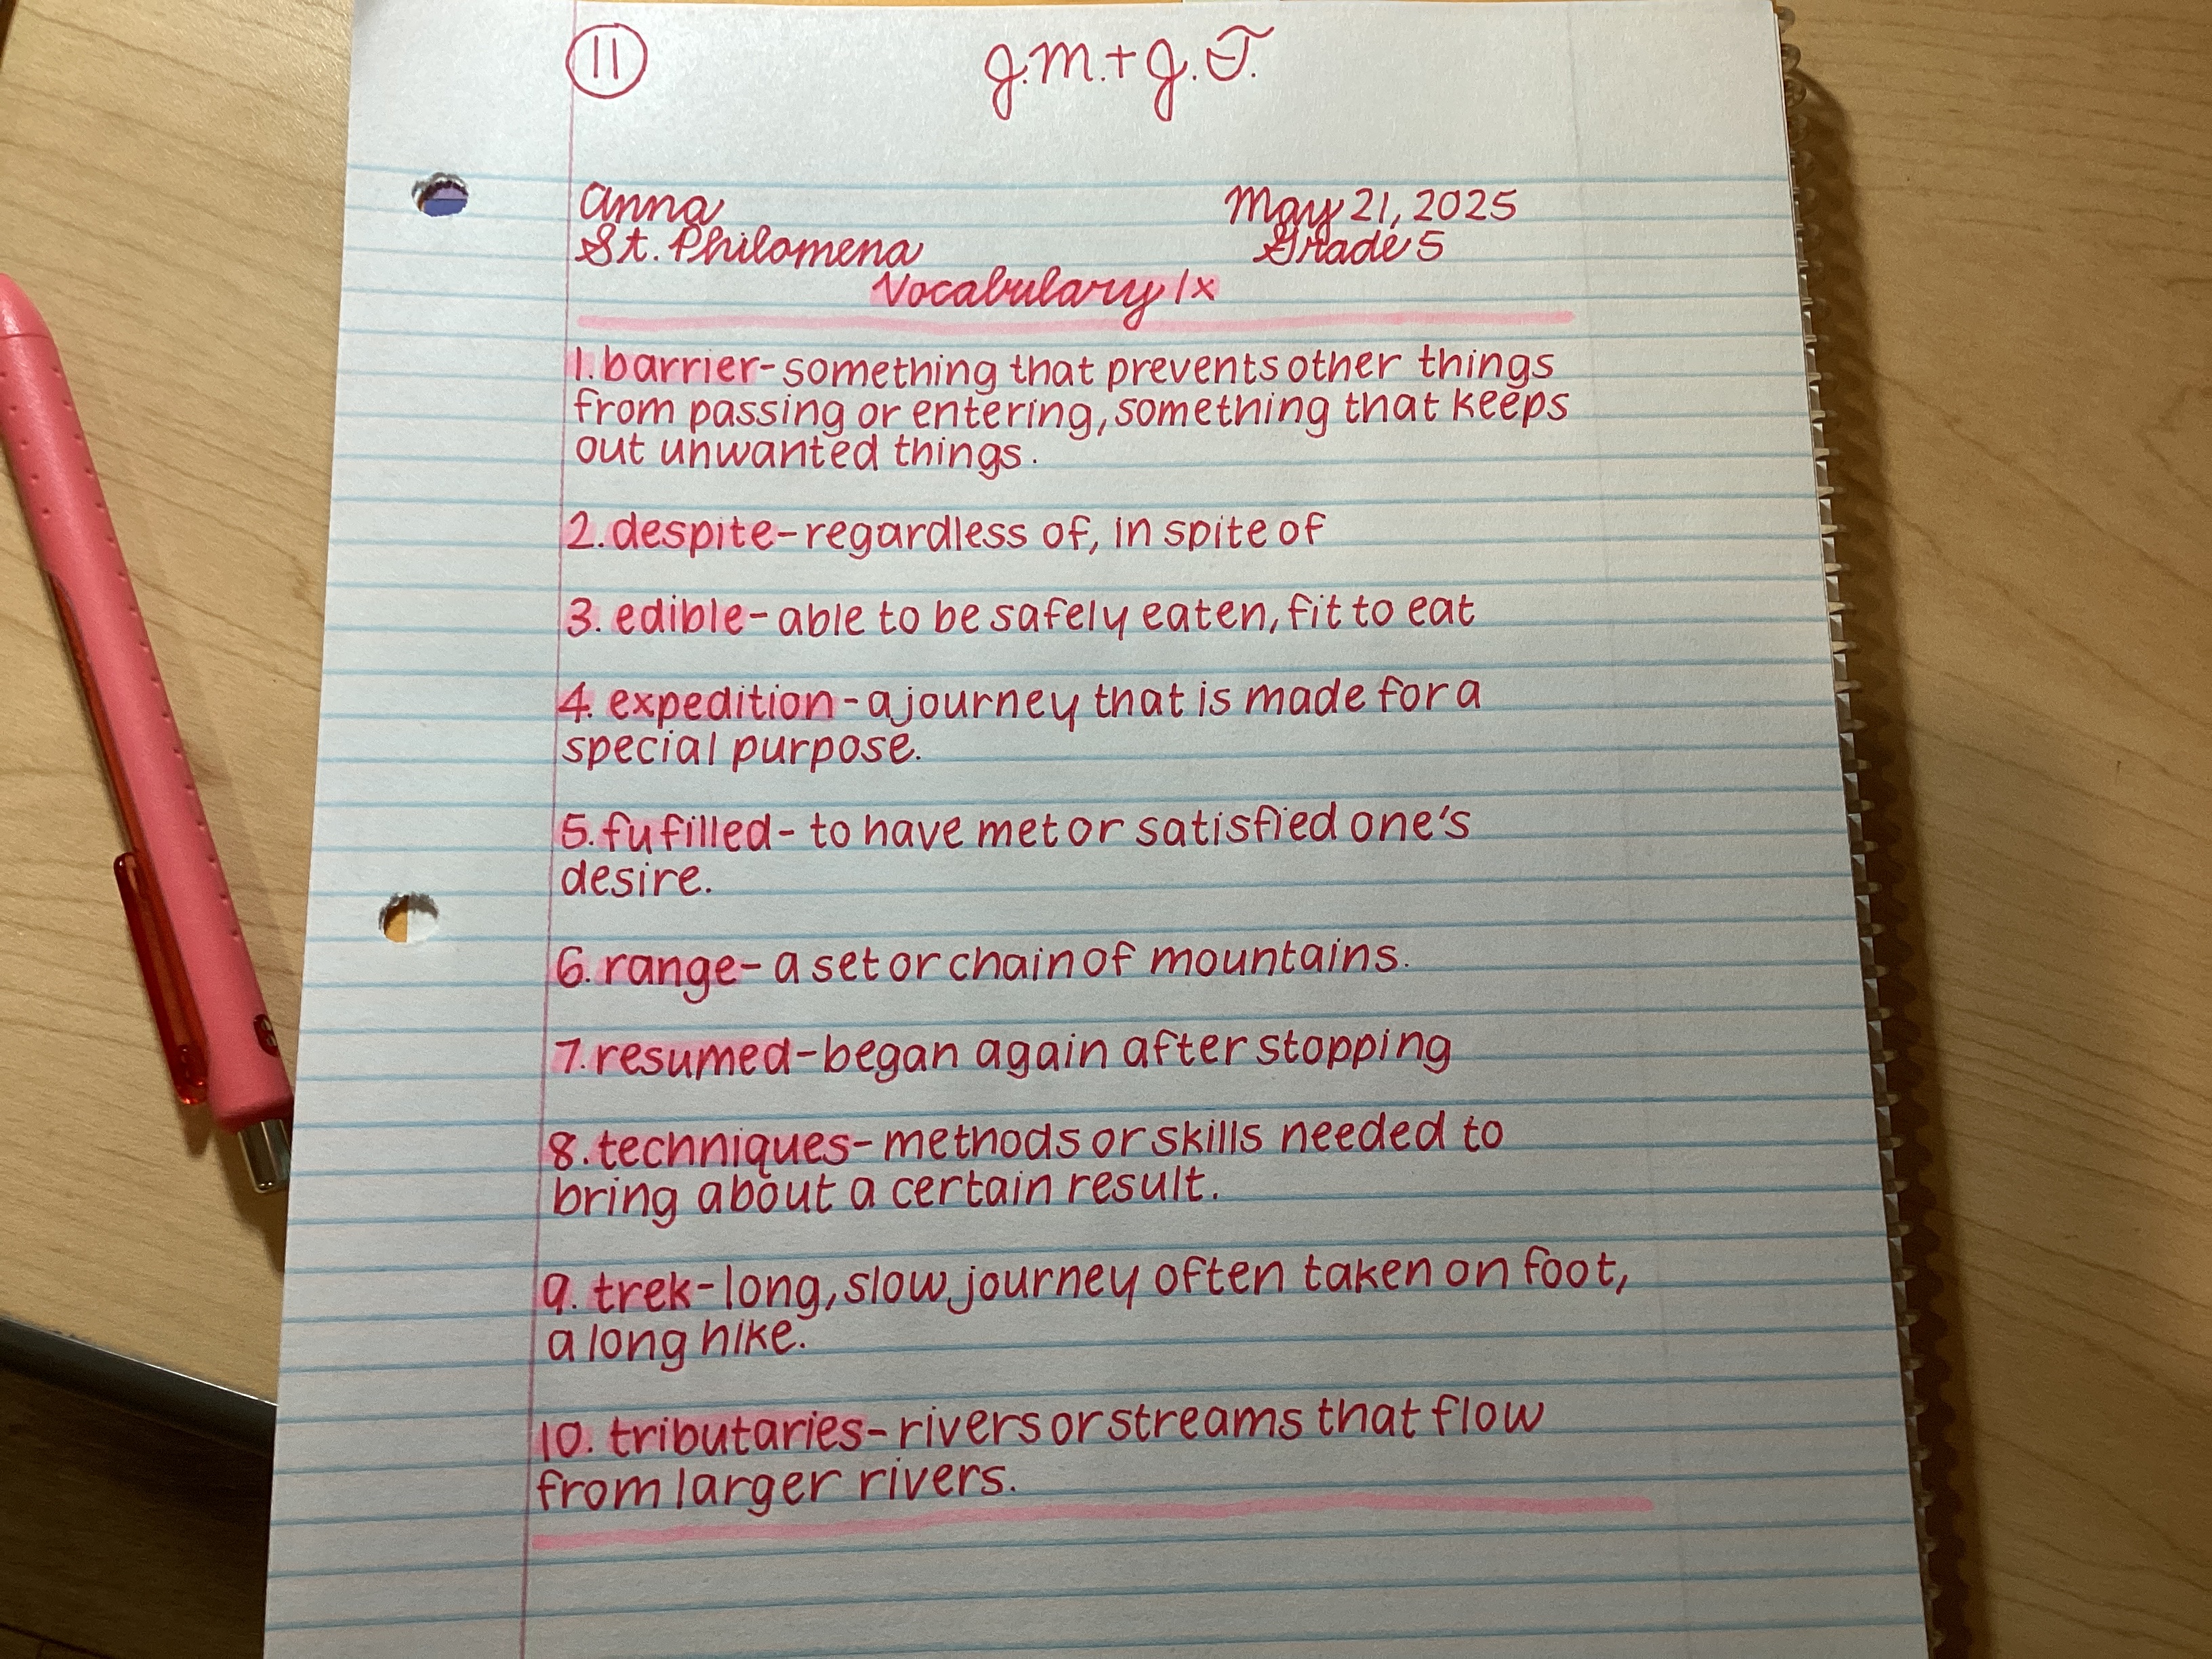 11
J.M.+J.T.
Anna May 21, 2025
St. Philomena Grade 5
Vocabulary 1x
1. barrier- something that prevents other things
from passing or entering, something that keeps
out unwanted things.
2. despite- regardless of, in spite of
3. edible- able to be safely eaten, fit to eat
4. expedition- a journey that is made for a
special purpose.
5. fufilled- to have met or satisfied one's
desire.
6. range- a set or chain of mountains.
7. resumed- began again after stopping
8. techniques- methods or skills needed to
bring about a certain result.
9. trek- long, slow journey often taken on foot,
a long hike.
10. tributaries- rivers or streams that flow
from larger rivers.